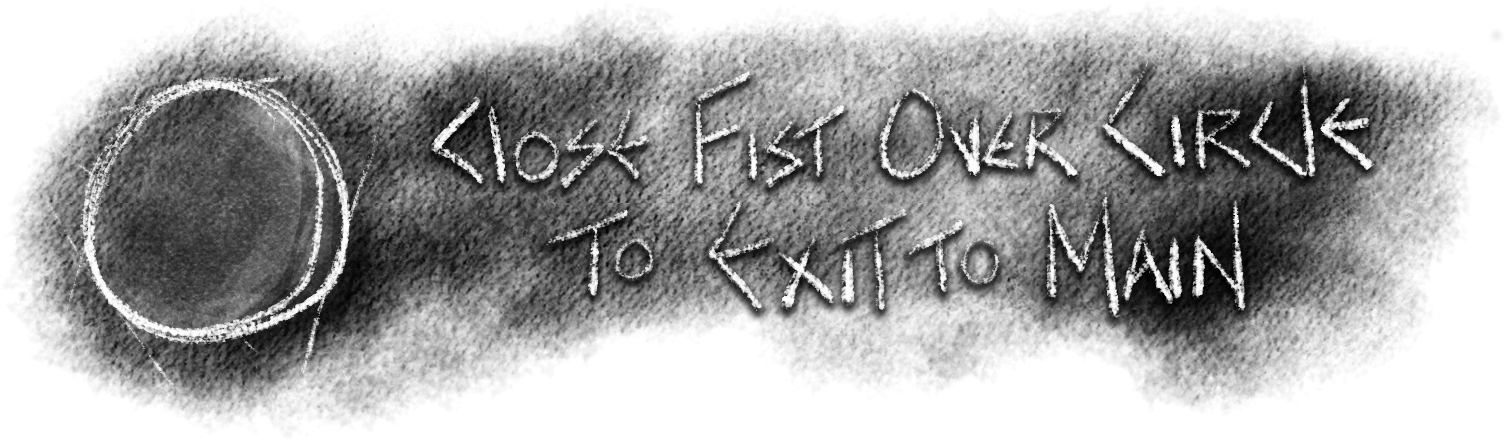 Close Fist Over Circle
To Exit to Main